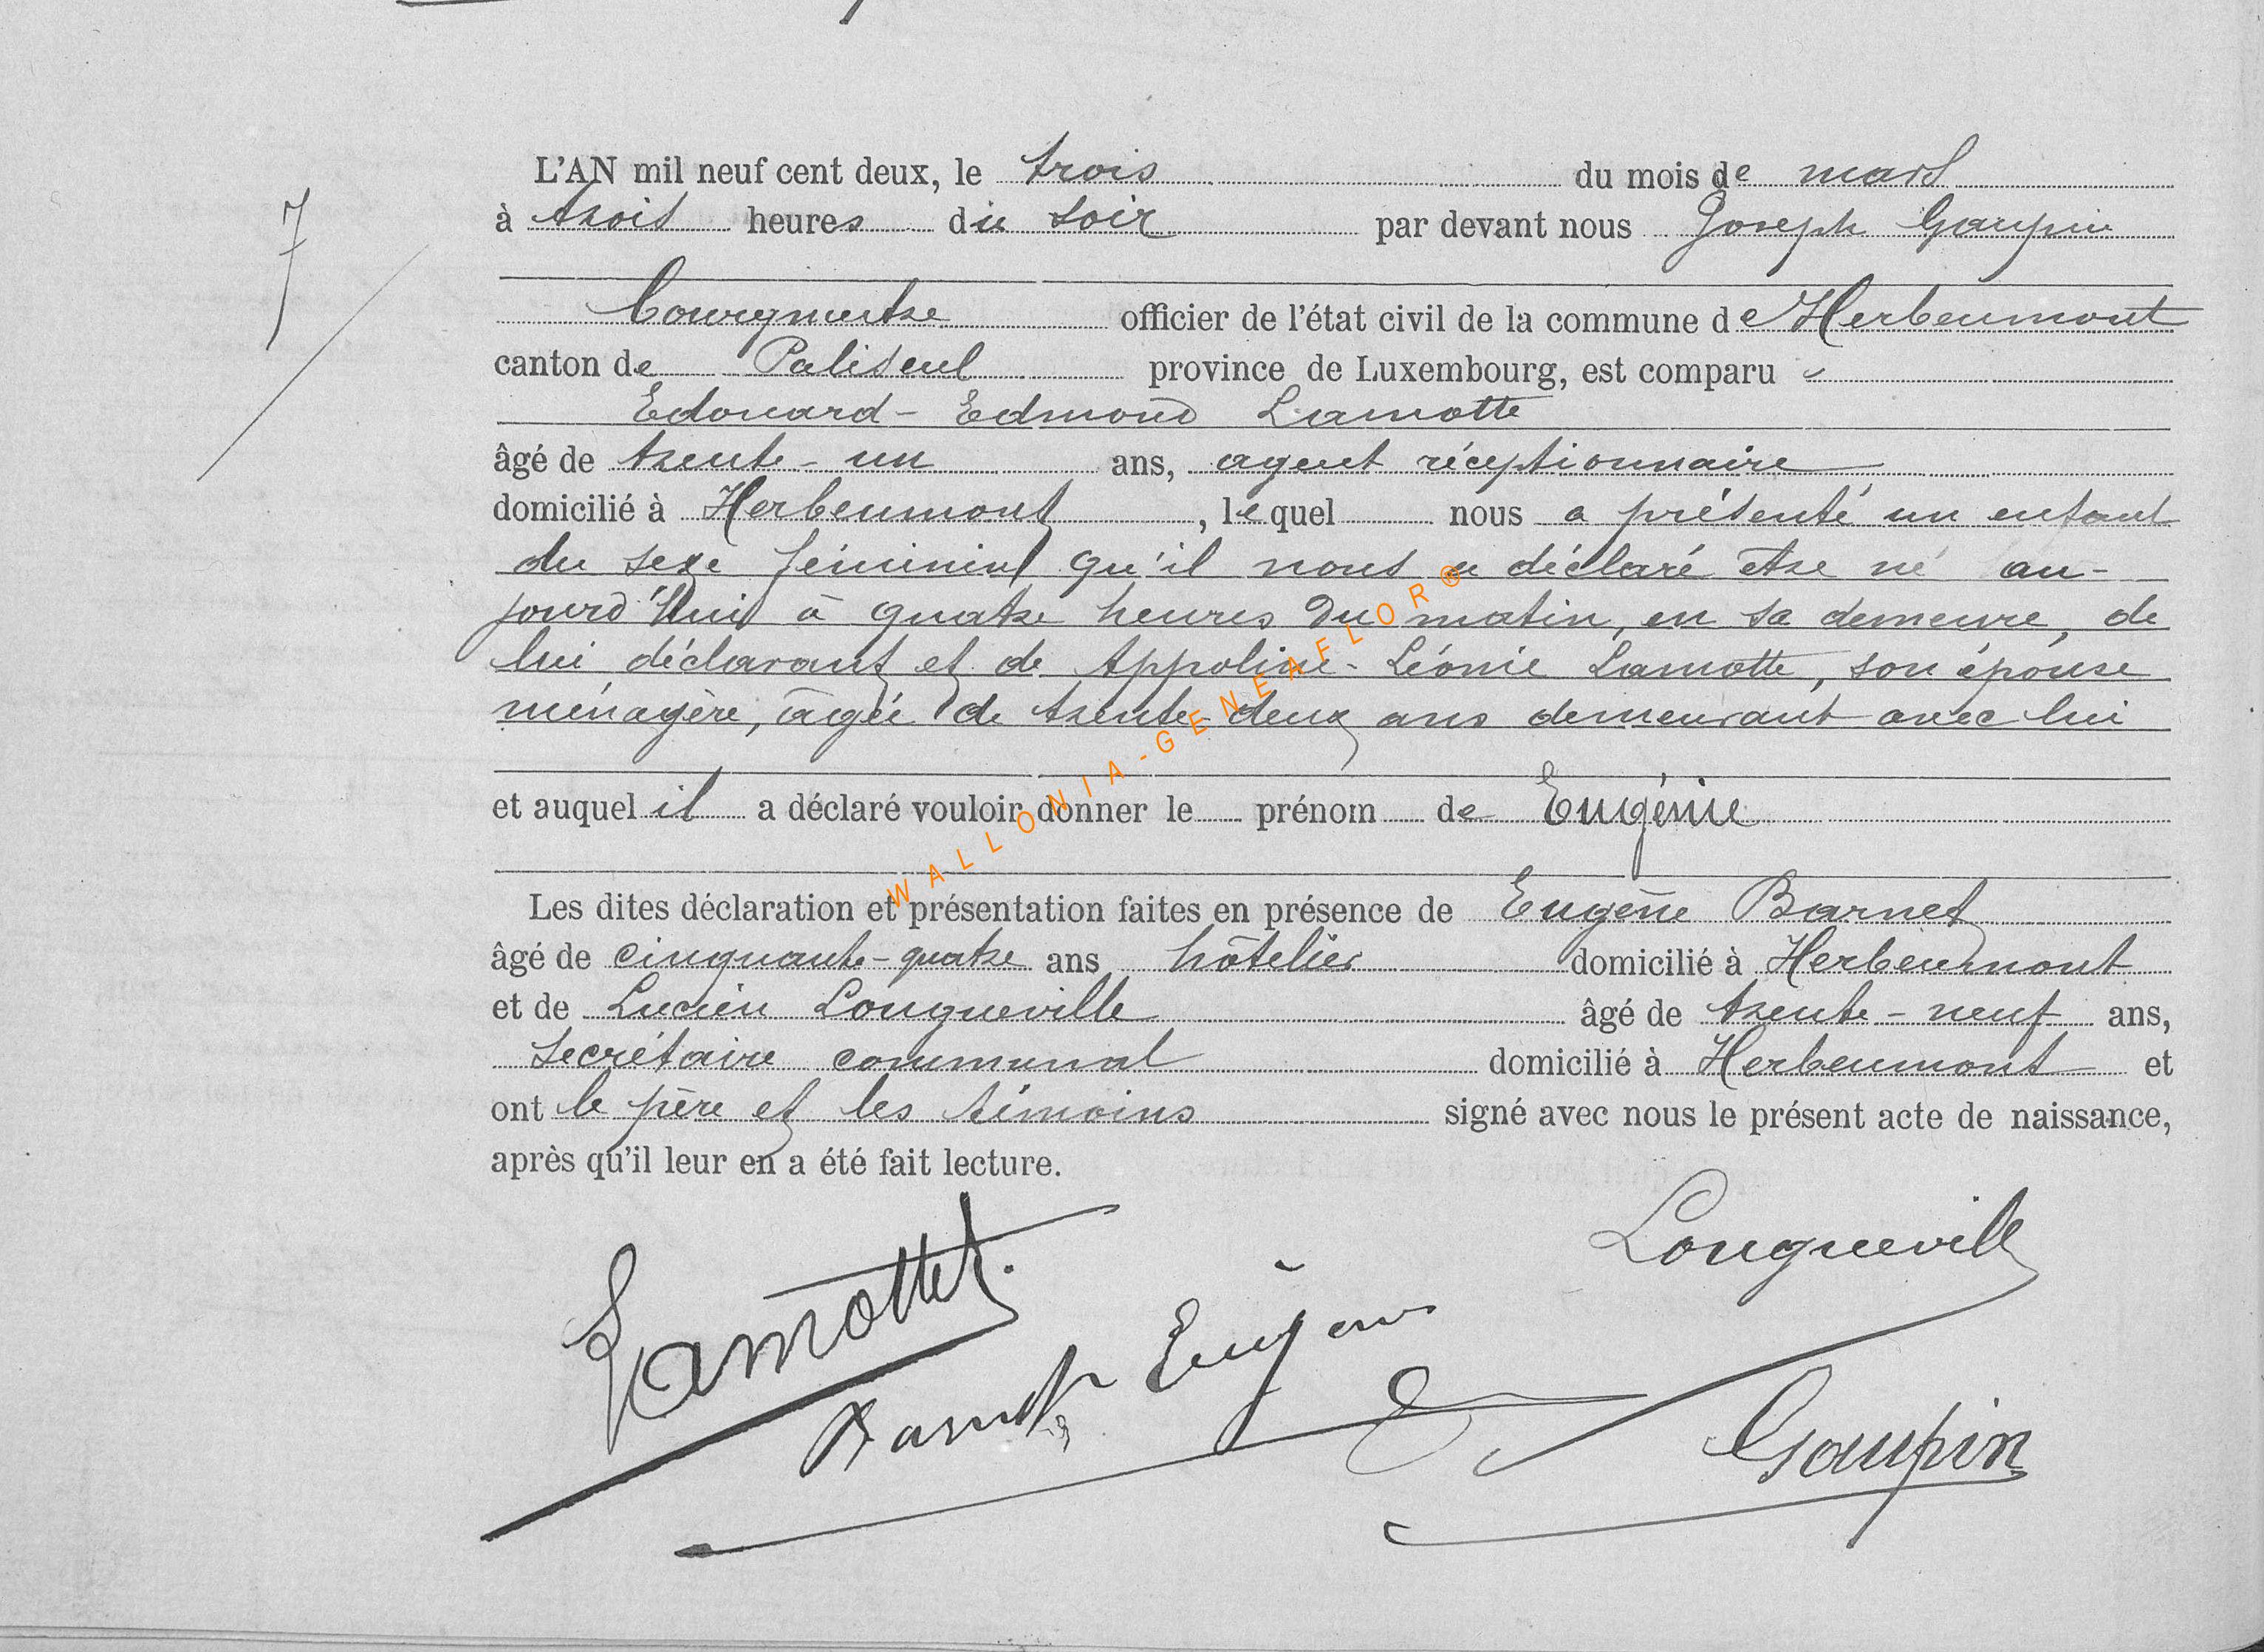 7
L'AN mil neuf cent deux, le trois du mois de mars
à trois heures du soir par devant nous Joseph Gaupin
Bourgmestre officier de l'état civil de la commune de Herbeumont
canton de Paliseul province de Luxembourg, est comparu
Edouard-Edmond Lamotte
âgé de trente-un ans, agent réceptionnaire
domicilié à Herbeumont, lequel nous a présenté un enfant
du sexe féminin qu'il nous a déclaré être né au-
jourd'hui à quatre heures du matin, en sa demeure, de
lui déclarant et de Appoline-Léonie Lamotte, son épouse
ménagère, âgée de trente-deux ans demeurant avec lui
et auquel il a déclaré vouloir donner le prénom de Eugénie
Les dites déclaration et présentation faites en présence de Eugène Barnet
âgé de cinquante-quatre ans hôtelier domicilié à Herbeumont
et de Lucien Longueville âgé de trente-neuf ans,
secrétaire communal domicilié à Herbeumont et
ont le père et les témoins signé avec nous le présent acte de naissance,
après qu'il leur en a été fait lecture.
WALLONIA-GENEAFLOR®
Longueville
Lamotte
Eugène
Gaupin